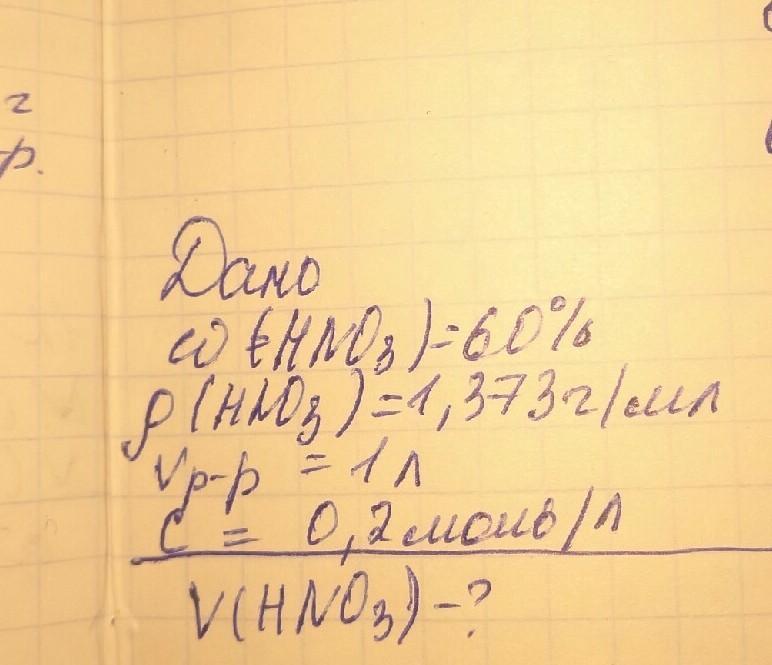 г
р.
Дано
ω(HNO₃)=60%
ρ(HNO₃)=1,373г/мл
Vр-р = 1л
C = 0,2моль/л
V(HNO₃)-?